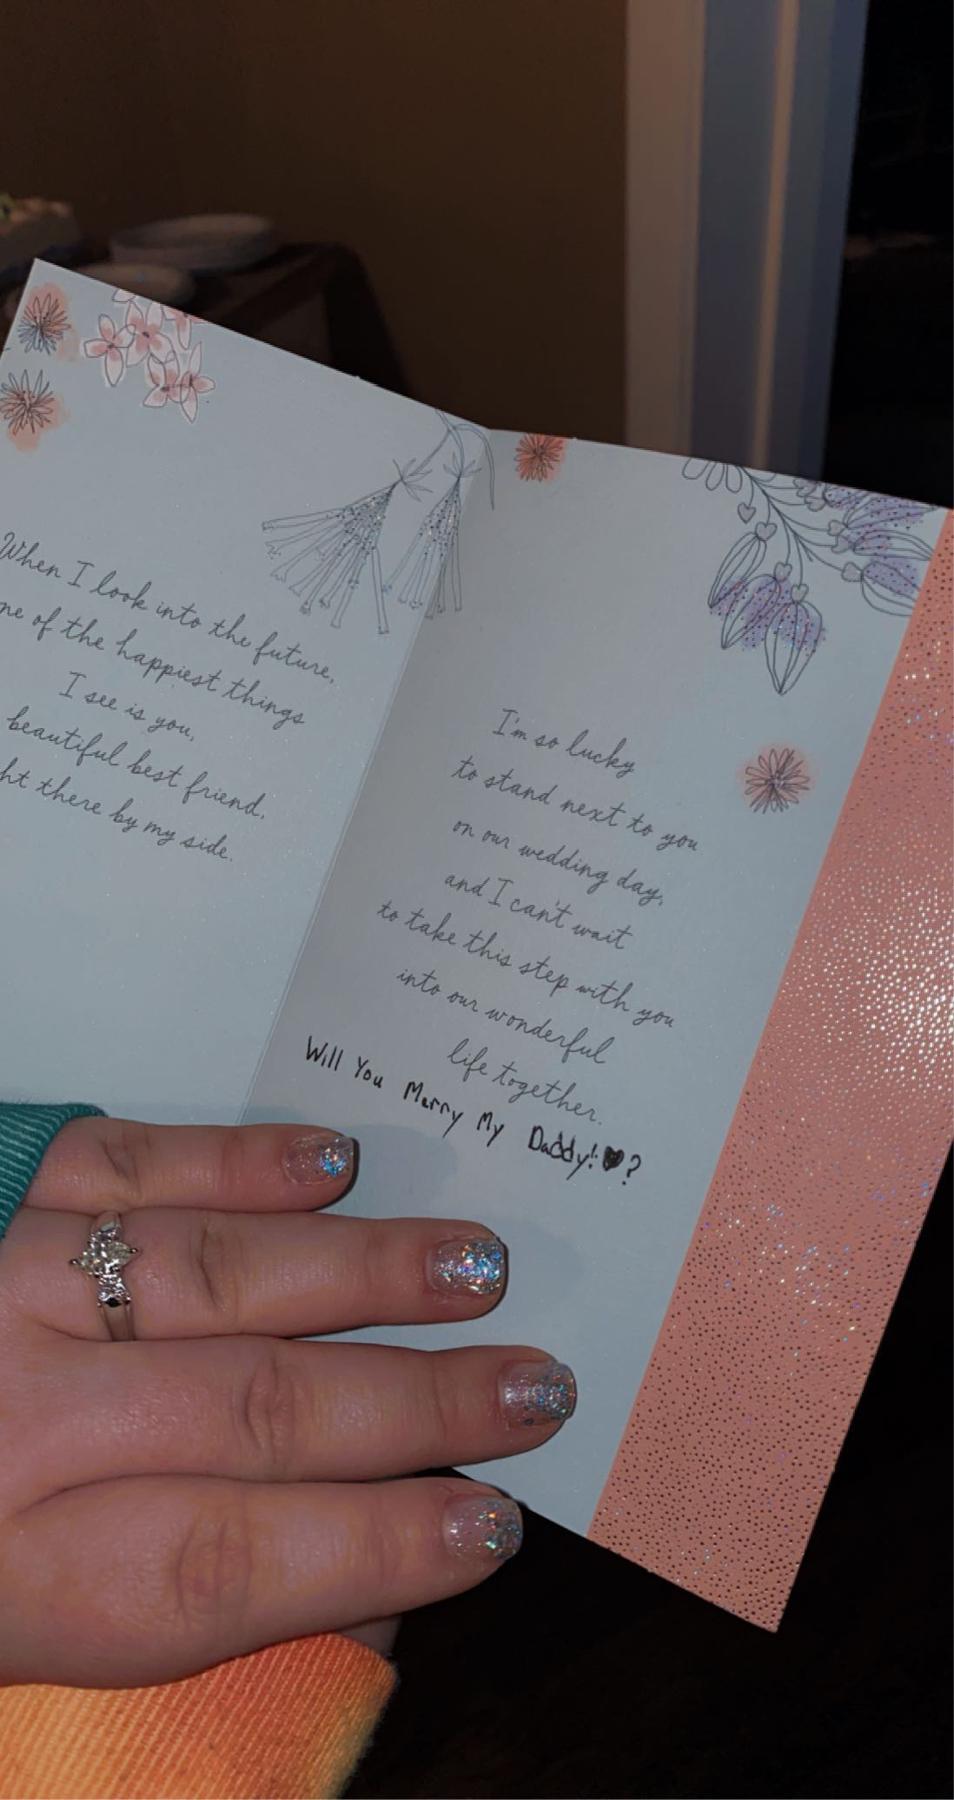 When I look into the future,
of the happiest things
I see is you,
beautiful best friend,
there by my side.
I'm so lucky
to stand next to you
on our wedding day,
and I can't wait
to take this step with you
into our wonderful
life together.
Will You Merry My Daddy!♥?